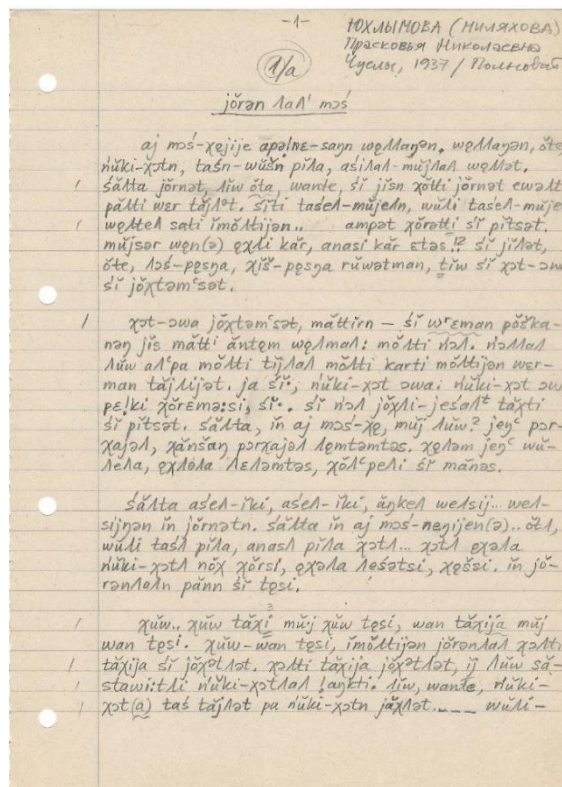 -1-
ЮХЛЫМОВА (МИЛЯХОВА)
Прасковья Николаевна
Чуелы, 1937 / Полноват
1/a
jŏrən ʌaʌ' mɔś
aj mɔś-χe̮jije apəʟ̣ṇe-saŋn we̮ʌʌaŋən. we̮ʌʌaŋən, ŏte,
ńŭki-χɔtn, taśn-wŭśn piʌa, aśiʌaʌ-mŭjʌaʌ we̮ʌʌət.
śăʌta jŏrnət, ʌiw ŏta, wante, śĭ jisn χŏtti jŏrnət ewəʌt
păʌti wɛr tăjʌət. śĭti taśeʌ-mŭjeʌn, wŭʌi taśeʌ-mŭje
we̮ʌteʌ sati ĭmŏʌtijən.. ampət χŏrətti śĭ pĭtsət.
mŭjsər we̮n(ə) e̮χʌi kăr, anaśi kăr ɛtəs!? śĭ jiʌət,
ŏte, ʌɔś-pe̮sŋa, χiš-pe̮sŋa rŭwətman, tĭw śĭ χɔt-ɔwa
śĭ jŏχtəmʿsət.
χɔt-ɔwa jŏχtəmʿsət, măttirn – śĭ wʳɛman pŏška-
nəŋ jis mătti ăntɛm we̮ʌmaʌ: mŏʌti ńɔʌ. ńɔʌʌaʌ
ʌŭw aʌʿpa mŏʌti tĭjʌaʌ mŏʌti karti mŏʌtijən wɛr-
man tăjʌijət. ja śĭ·, ńŭki-χɔt ɔwa· ńŭki-χɔt ɔw
pɛʟ̣ki χŏrɛma:si, śĭ·. śĭ ńɔʌ jŏχʌi-jeśaʌᵗ tăχti
śĭ pĭtsət. śăʌta, ĭn aj mɔś-χe̮, mŭj ʌŭw? jeŋʿ pɔr-
χajəʌ, χănśaŋ pɔrχajəʌ ʌe̮mtəmtəs. χe̮ʌəm jeŋʿ wŭ-
ʌeʌa, e̮χʌəʌa ʌɛʌəmtəs, χŏʌʿpeʌi śĭ mănəs.
śăʌta aśeʌ-iki, aśeʌ-ĭki, ăŋkeʌ weʌsij... weʌ-
sijŋən ĭn jŏrnətn. śăʌta ĭn aj mɔs-neŋijen(ə).. ŏtʌ,
wŭʌi taśʌ piʌa, anasʌ piʌa χɔtʌ... χɔtʌ e̮χəʌa
ńŭki-χɔtʌ nŏχ χŏrsi, e̮χəʌa ʌeśətsi, χe̮śsi. ĭn jŏ-
rənʌaʌn pănn śĭ te̮si.
χŭw.. χŭw tăχi mŭj χŭw te̮si, wan tăχija mŭj
wan te̮si. χŭw-wan te̮si, ĭmŏʌtijən jŏrənʌaʌ χɔʌti
tăχija śĭ jŏχətʌət. χɔʌti tăχija jŏχətʌət, ij ʌŭw să-
stawi:tʌi ńŭki-χɔtʌaʌ ʟ̣aŋkti. ʌiw, wante, ńŭki-
χɔt(a) taś tăjʌət pa ńŭki-χɔtn jăχʌət.___ wŭʌi-